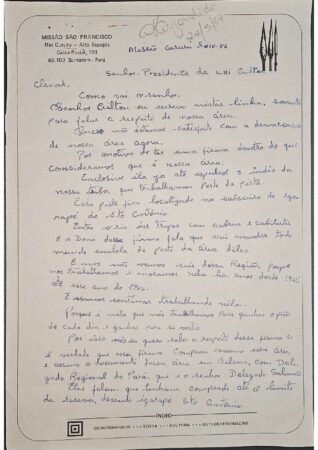 MISSÃO SÃO FRANCISCO
Rio Cururu - Alto Tapajós
Caixa Postal, 191
68.100 Santarém - Pará
Missão Cururú 5-10-86
Senhor - Presidente da UNI Ailton
Como vai o senhor.
Senhor Ailton eu escrevo nestas linha, somente
para falar a respeito de nossa área.
não estamos satisfeito com a demarcação
de nossa área agora.
Por motivo de ter uma firma dentro do que
consideramos que é nossa área.
Inclusive ela já até expulsou os índio da
nossa tribo, que trabalhavam perto da pista.
Essa pista fica localizado na cabeceira do Igarapé
de Sto Antônio.
Entre o rio das Tropas com cabrua e cabitutu
E o Dono dessa firma fala que vai mandar todo
mundo embora de perto da área deles.
E nós não vamos sair dessa Região, porque
nós trabalhamos e moramos nela há anos desde
até esse ano de 1986.
E vamos continuar trabalhando nela.
Porque é nesta que nós trabalhamos para ganhar o pão
de cada dia e ganhar para se vestir.
Por isso nós eu quero saber a respeito dessa firma se
é verdade que essa firma Comprou mesmo essa área,
e assinou o documento dessa área em Belém, com Delegado
Regional do Pará, que é o senhor Delegado Salomão
Eles falam que tinham comprado até o limite
da reserva, desde igarapé Sto Antônio.
ÍNDIO
TERRA - CULTURA - AUTODETERMINAÇÃO